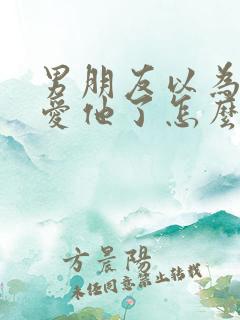 男朋友以為
愛他了怎麼
方晨陽
未經同意禁止轉載